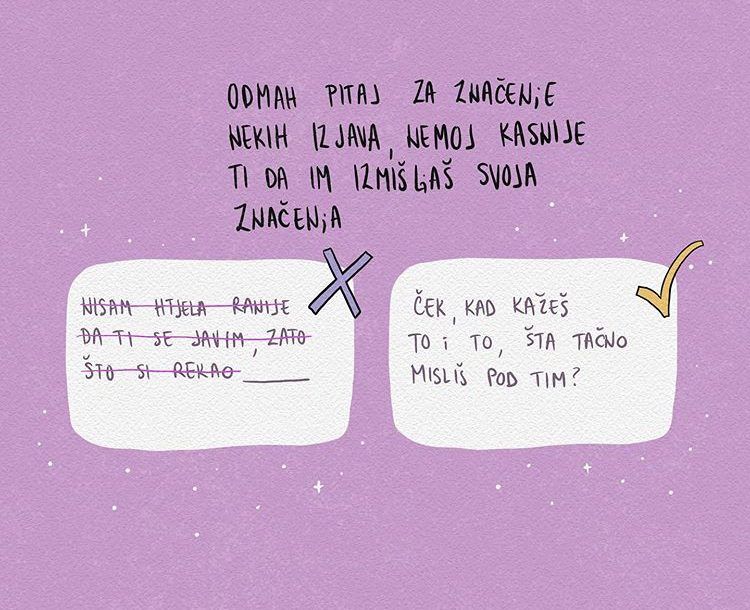 ODMAH PITAJ ZA ZNAČENjE
NEKIH IZJAVA, NEMOJ KASNIJE
TI DA IM IZMIŠLjAŠ SVOJA
ZNAČENjA
NISAM HTJELA RANIJE
DA TI SE JAVIM, ZATO
ŠTO SI REKAO ______
ČEK, KAD KAŽEŠ
TO i TO, ŠTA TAČNO
MISLIŠ POD TIM?